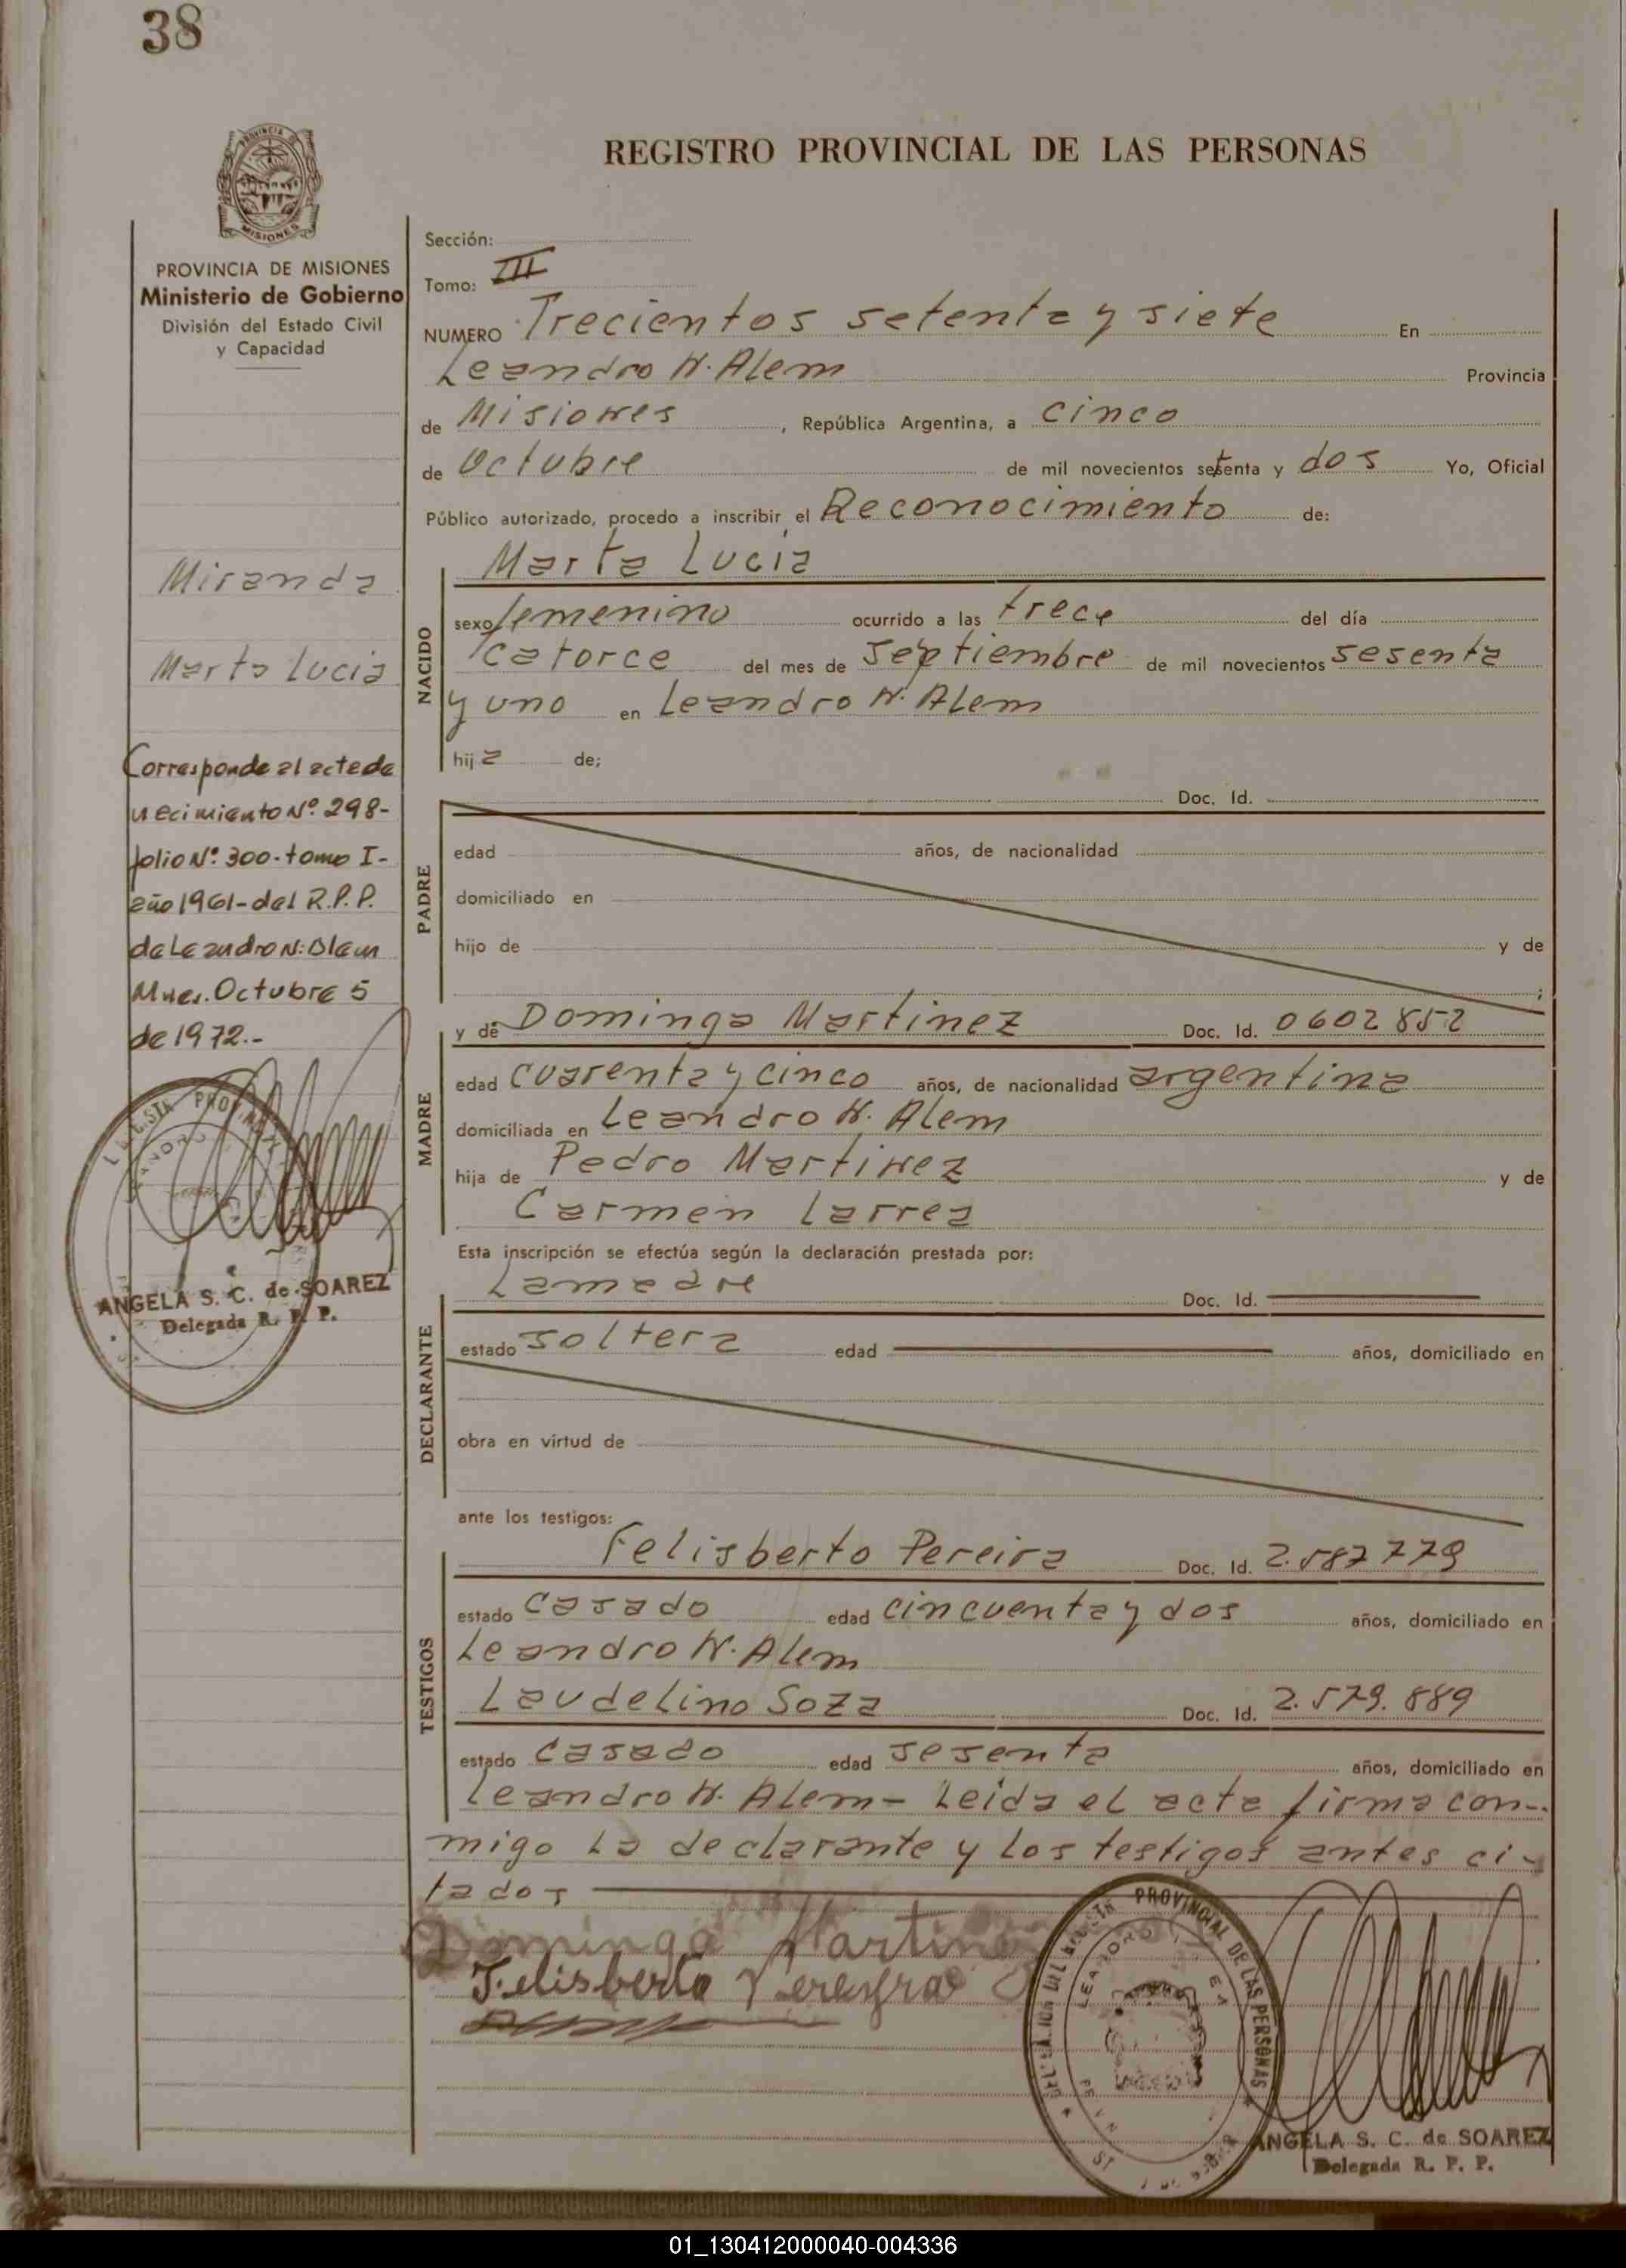 38
REGISTRO PROVINCIAL DE LAS PERSONAS
PROVINCIA DE MISIONES
Ministerio de Gobierno
División del Estado Civil
y Capacidad
Miranda
Marta Lucia
Corresponde al acta de
necimiento Nº 298-
folio Nº 300-tomo I-
año 1961-del R.P.P.
de Leandro N. Alem
Mnes. Octubre 5
de 1972.-
ANGELA S. C. de SOAREZ
Delegada R. P. P.
Sección:
Tomo: III
NUMERO Trecientos setenta y siete En
Leandro N. Alem Provincia
de Misiones, República Argentina, a cinco
de Octubre de mil novecientos setenta y dos Yo, Oficial
Público autorizado, procedo a inscribir el Reconocimiento de:
Marta Lucia
NACIDO
sexo femenino ocurrido a las trece del día
catorce del mes de Septiembre de mil novecientos sesenta
y uno en Leandro N. Alem
hija de;
Doc. Id.
PADRE
edad años, de nacionalidad
domiciliado en
hijo de y de
;
y de Dominga Martinez Doc. Id. 0602852
MADRE
edad cuarenta y cinco años, de nacionalidad argentina
domiciliada en Leandro N. Alem
hija de Pedro Martinez y de
Carmen Larrea
Esta inscripción se efectúa según la declaración prestada por:
La madre Doc. Id.
DECLARANTE
estado soltera edad años, domiciliado en
obra en virtud de
ante los testigos:
Felisberto Pereira Doc. Id. 2.587779
TESTIGOS
estado casado edad cincuenta y dos años, domiciliado en
Leandro N. Alem
Laudelino Soza Doc. Id. 2.579.889
estado casado edad sesenta años, domiciliado en
Leandro N. Alem- Leida el acta firma con-
migo la declarante y los testigos antes ci-
tados
Dominga Martinez
Felisberto Pereyra
PROVINCIAL DE LAS PERSONAS
ANGELA S. C. de SOAREZ
Delegada R. P. P.
01_130412000040-004336